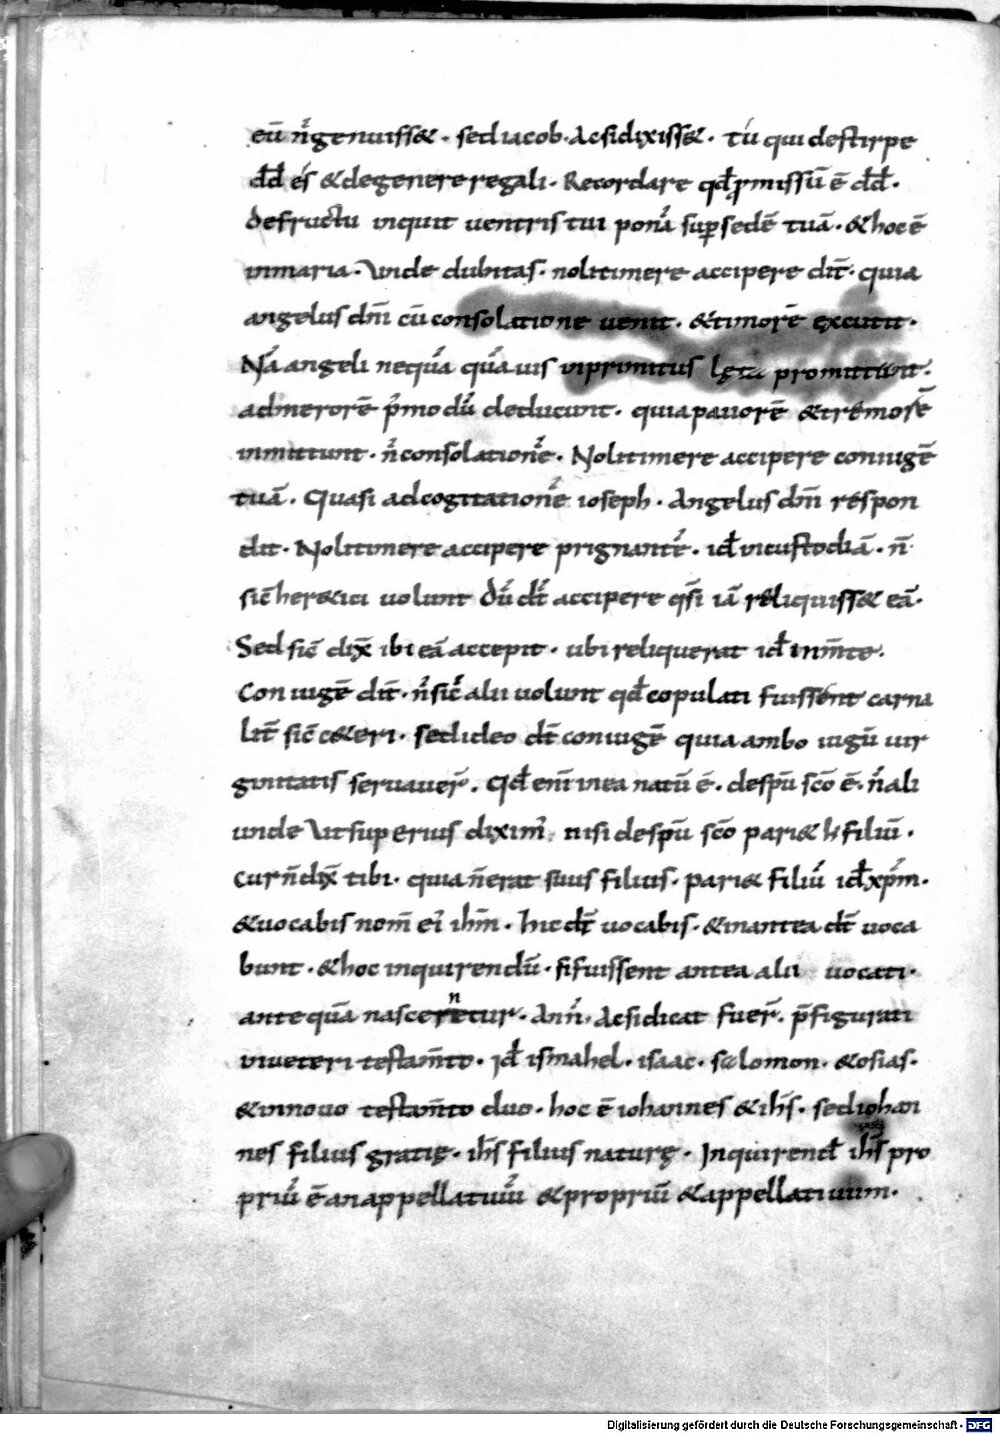 eū n̄genuiss&. sed iacob. Acsi dixiss&. tu qui destirpe
dd̄ es & degenere regali. Recordare qd̄ p̱missū ē dd̄.
defructu inquit uentris tui ponā sup̱ sedē tuā. & hoc ē
inmaria. Unde dubitas. noli timere accipere dīc. quia
angelus dn̄i cū consolatione uenit. & timorē excutit.
Nā angeli nequā quā uis inprimitus lęta promittunt.
admerorē p̄mo dū deducunt. quia pauorē & tremorē
inmittunt. n̄ consolationē. Noli timere accipere coniugē
tuā. Quasi ad cogitationē ioseph. Angelus dn̄i respon
dit. Noli timere accipere prignantē. id̄ incustodiā. n̄
sic̄ her&ici uolunt dū dr̄ accipere qsi iā reliquiss& eā.
Sed sic̄ dix̄ ibi eā accepit. ubi reliquerat id̄ inm̄te.
Coniugē dīc. n̄ sic̄ alii uolunt qd̄ copulati fuissent carna
lit̄ sic̄ c&eri. sed ideo dr̄ coniugē quia ambo iugū uir
ginitatis seruauer̄. Qd̄ enī inea natū ē. despū sc̄o ē. n̄ ali
unde Ut superius diximꝰ nisi despū sc̄o pari& h̄ filiū.
Cur n̄ dix̄ tibi. quia n̄ erat suus filius. pari& filiū id̄ xp̄m.
& uocabis nom̄ eiꝰ ih̄m. hic dr̄ uocabis. & inantea dr̄ uoca
bunt. & hoc inquirendū. si fuissent antea alii uocati.
ante quā nascerentur. Ann̄. Acsi dicat fuer̄. p̄figurati
inueteri testam̄to. Id̄ ismahel. isaac. salomon. & osias.
& innouo testam̄to duo. hoc ē iohannes & ih̄s. sed iohan
nes filius gratię. ih̄s filius naturę. Inquirend̄ ih̄s pro
priū ē an appellatiuū & propriū & appellatiuum.
Digitalisierung gefördert durch die Deutsche Forschungsgemeinschaft - DFG